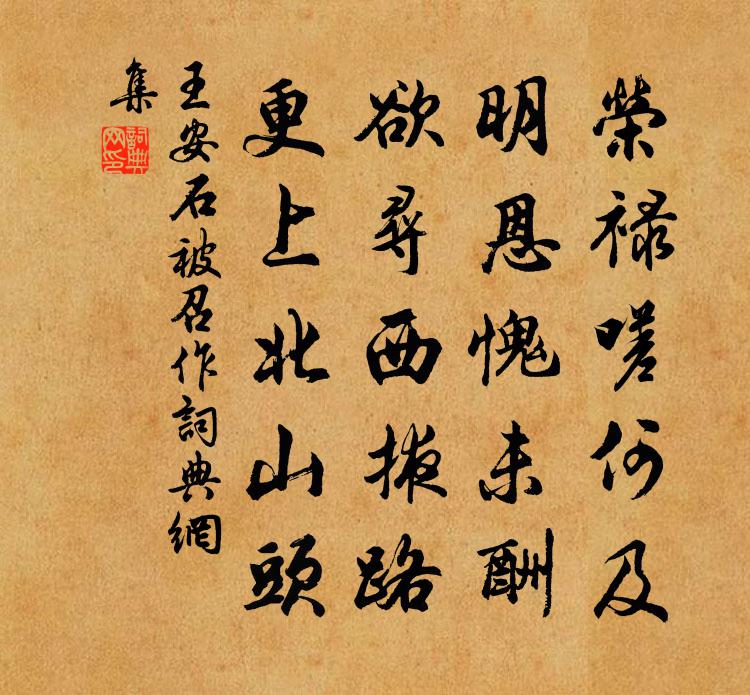 榮禄嗟何及
明恩愧未酬
欲尋西掖路
更上北山頭
王安石被召作詞典網
集
詞典網印